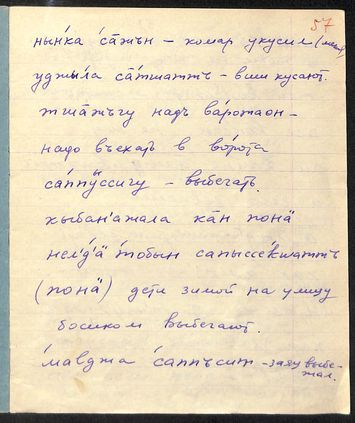 57
ны́нка са̄жън – комар укусил (меня)
уджы́ла са̄тшаттъ – вши кусают.
тша̄жъгу надъ ва́ротаон –
надо въехать в ворота
са́ппы̄ссигу – выбегать.
кыбан'ажала ка̄н понӓ
сапыссе́кшаттъ
(понӓ) дети зимой на улицу
босиком выбегают.
ма́вджа са́ппъсит – заяц выбежал.